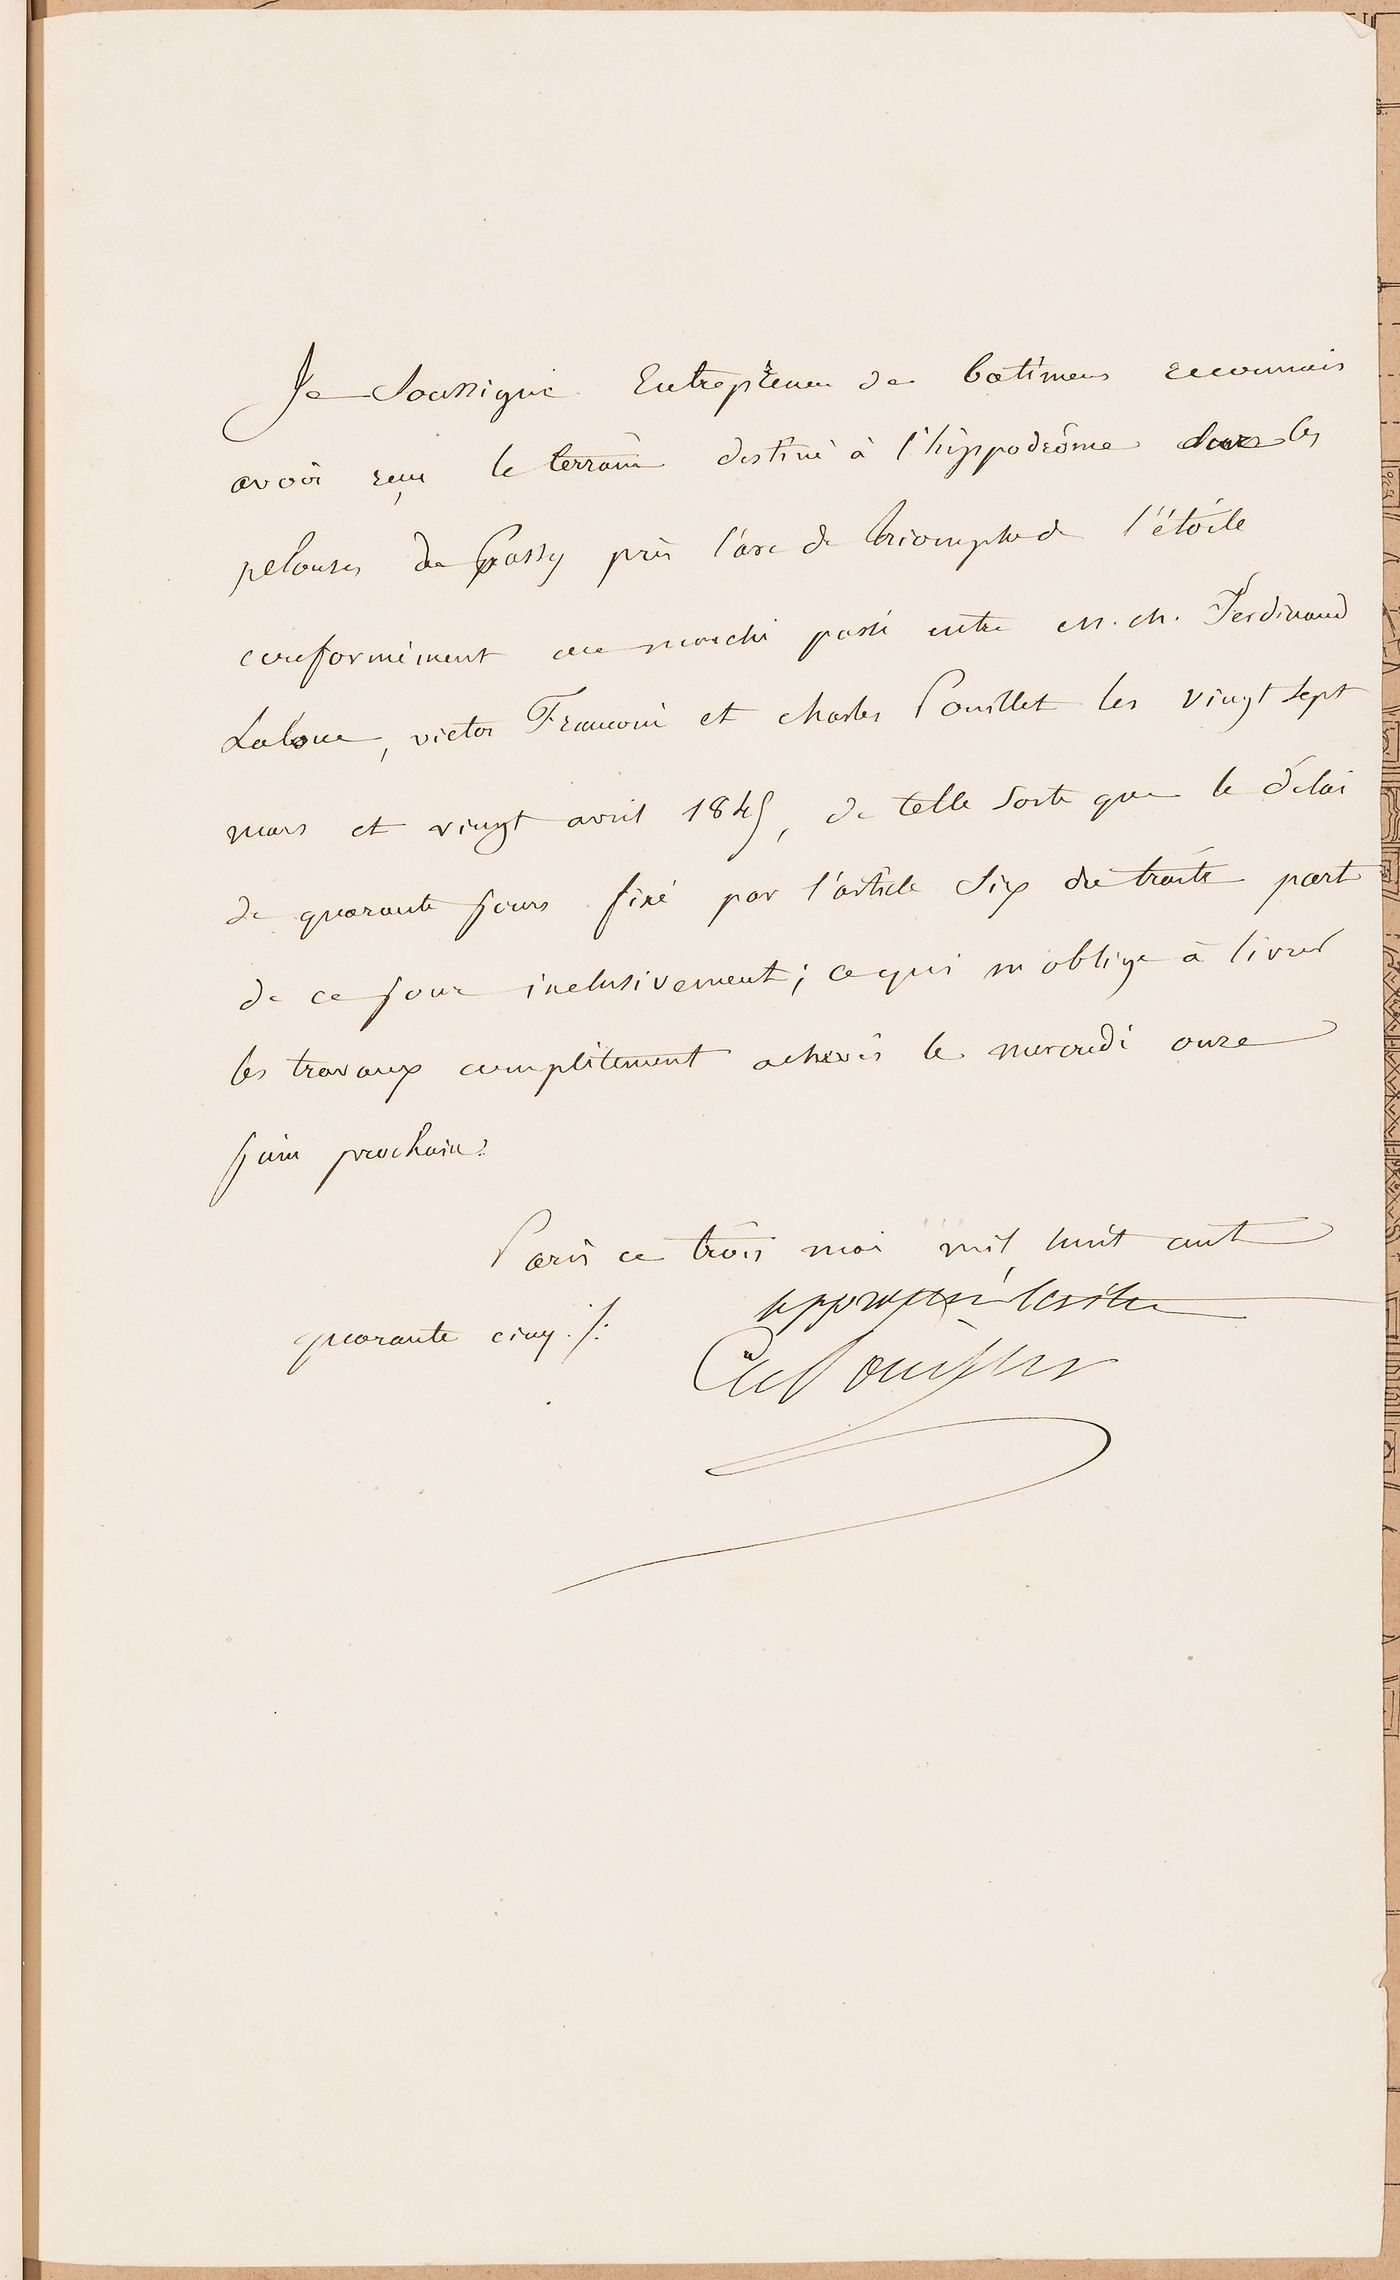 Je soussigné Entrepreneur de batimens reconnais
avoir reçu le terrain destiné à l'hippodrôme sur les
pelouses de Passy près l'arc de triomphe de l'étoile
conformément au marché passé entre M. M. Ferdinand
Laloue, victor Franconi et charles Pouillet les vingt sept
mars et vingt avril 1845, de telle sorte que le délai
de quarante jours fixé par l'article six du traité part
de ce jour inclusivement; ce qui m'oblige à livrer
les travaux complètement achevés le mercredi onze
juin prochain.
Paris ce trois mai mil huit cent
quarante cinq ./.
approuvé l'écriture
Ch Pouillet